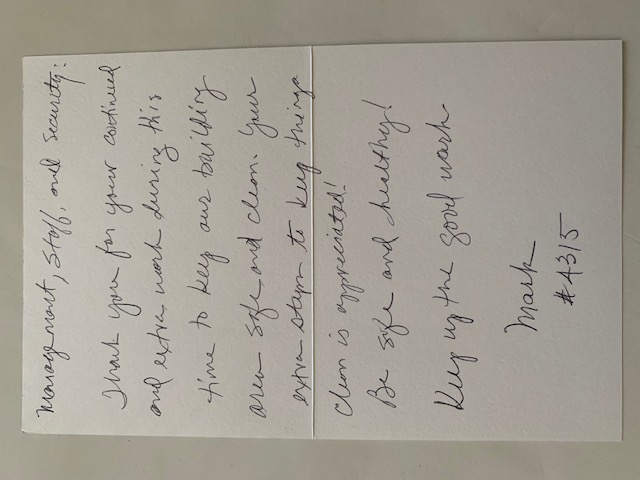 Management, Staff, and Security:
Thank you for your continued
and extra work during this
time to keep our building
area safe and clean. Your
extra steps to keep things
clean is appreciated!
Be safe and healthy!
Keep up the good work
Mark
#4315